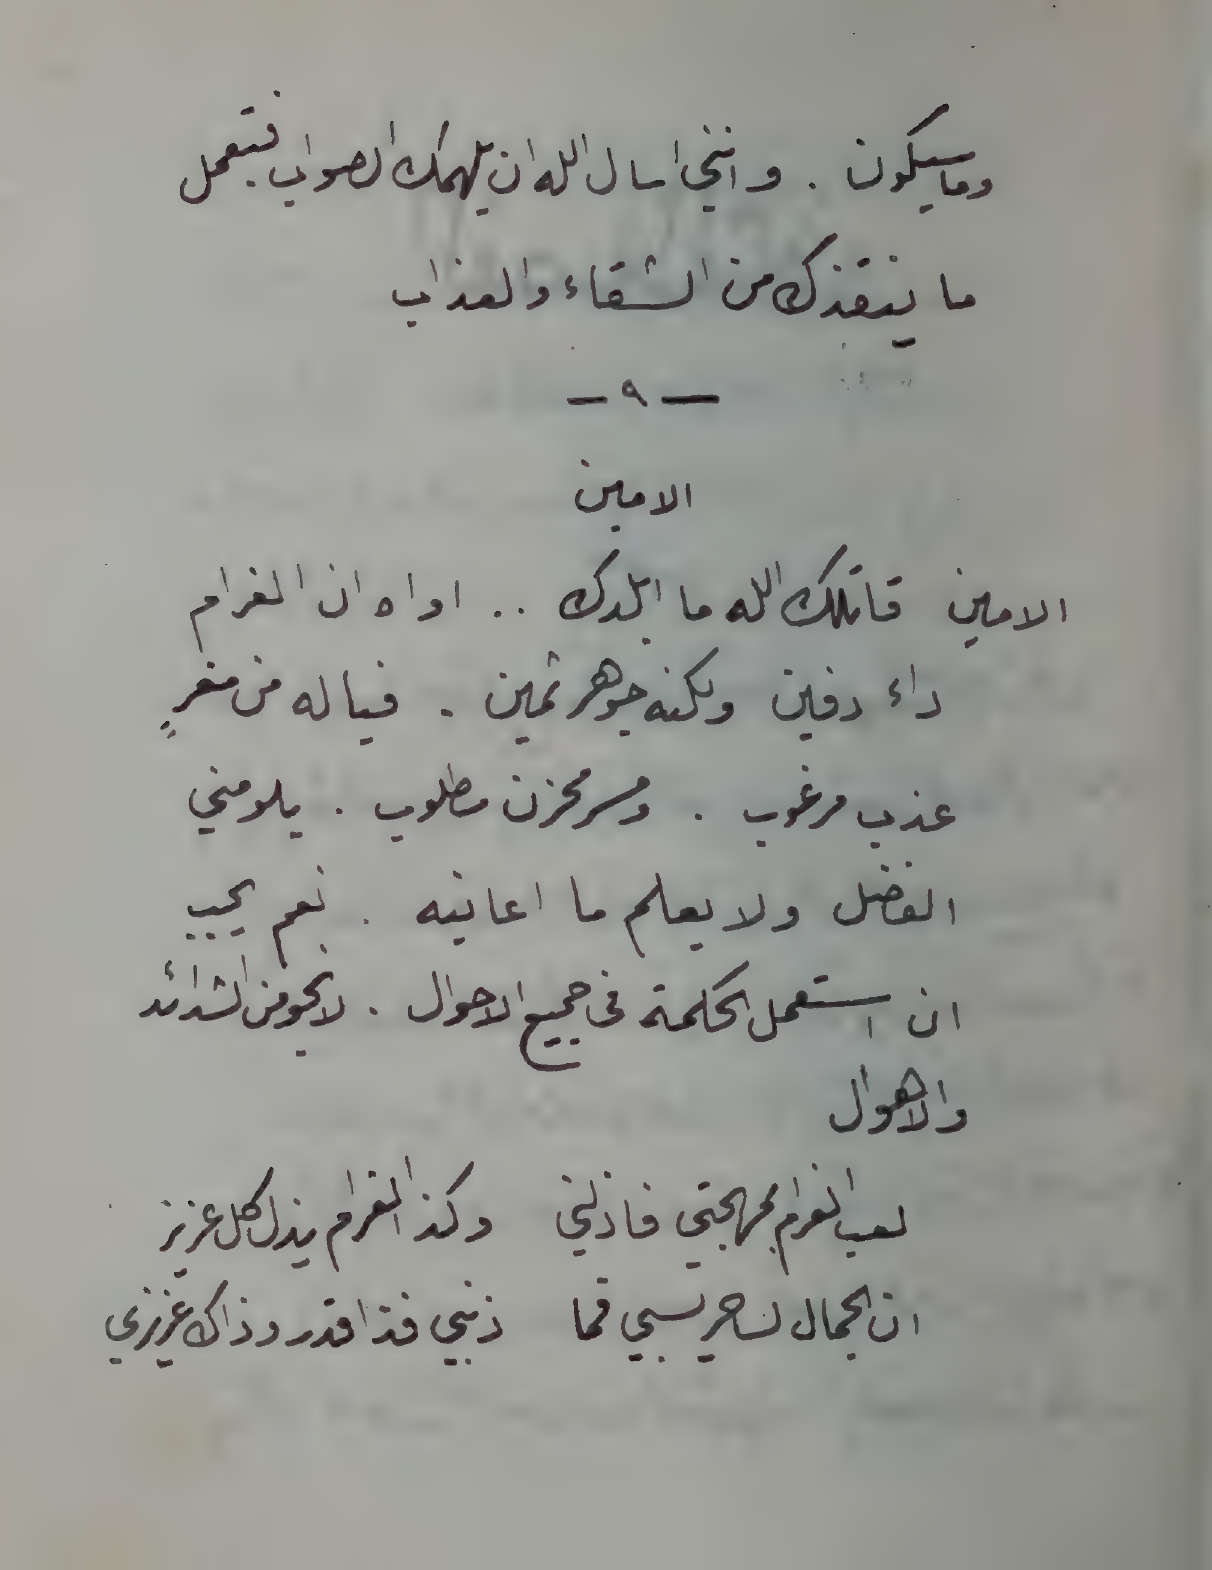 وما سيكون . وانني اسال الله ان يلهمك الصواب فتعمل
ما ينقذك من الشقاء والعذاب
— ٩ —
الامين
الامين قاتلك الله ما ابلدك .. اواه ان الغرام
داء دفين ولكنه جوهر ثمين . فياله من مغرٍ
عذب مرغوب . ومسر محزن مطلوب . يلومني
الفضل ولا يعلم ما اعانيه . نعم يجب
ان استعمل الحكمة في جميع الاحوال . لانجو من الشدائد
والاهوال
لعب الغرام بمهجتي فاذلني وكذا الغرام يذل كل عزيز
ان الجمال لساحر يسبي فما ذنبي فذا قدر وذاك غريزي